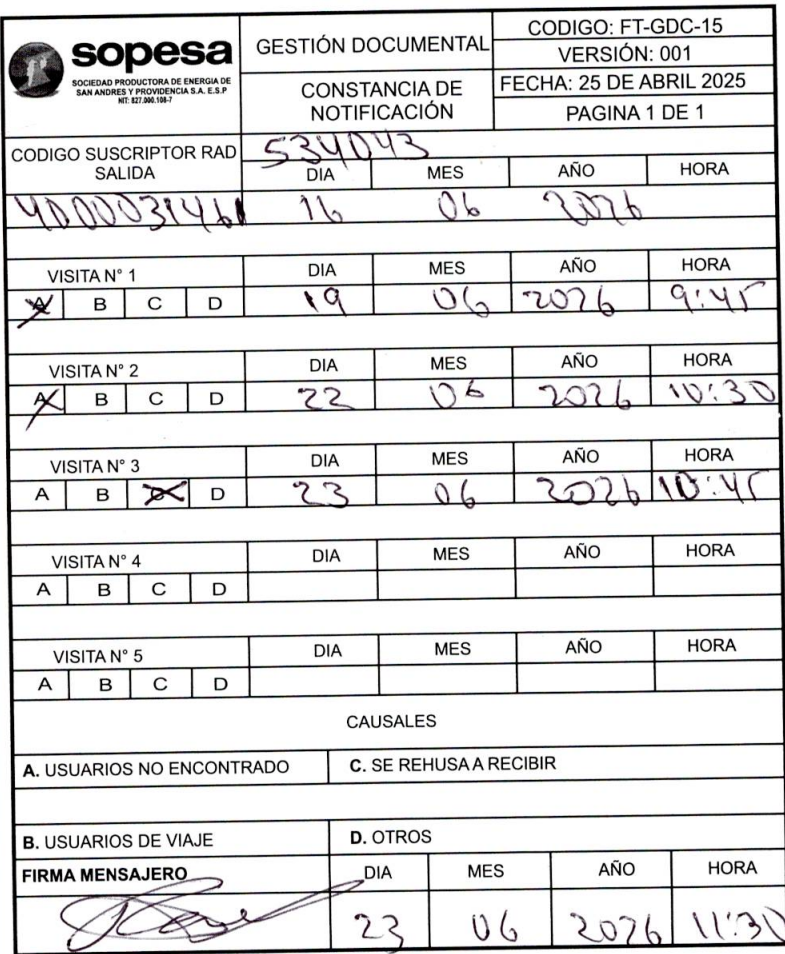 sopesa
SOCIEDAD PRODUCTORA DE ENERGIA DE
SAN ANDRES Y PROVIDENCIA S.A. E.S.P
NIT: 827.000.108-7
GESTIÓN DOCUMENTAL
CONSTANCIA DE
NOTIFICACIÓN
CODIGO: FT-GDC-15
VERSIÓN: 001
FECHA: 25 DE ABRIL 2025
PAGINA 1 DE 1
CODIGO SUSCRIPTOR RAD
SALIDA
534043
DIA MES AÑO HORA
4000031461 16 06 2026
VISITA N° 1 DIA MES AÑO HORA
A B C D 19 06 2026 9:45
VISITA N° 2 DIA MES AÑO HORA
A B C D 22 06 2026 10:30
VISITA N° 3 DIA MES AÑO HORA
A B C D 23 06 2026 10:45
VISITA N° 4 DIA MES AÑO HORA
A B C D
VISITA N° 5 DIA MES AÑO HORA
A B C D
CAUSALES
A. USUARIOS NO ENCONTRADO C. SE REHUSA A RECIBIR
B. USUARIOS DE VIAJE D. OTROS
FIRMA MENSAJERO DIA MES AÑO HORA
23 06 2026 11:30